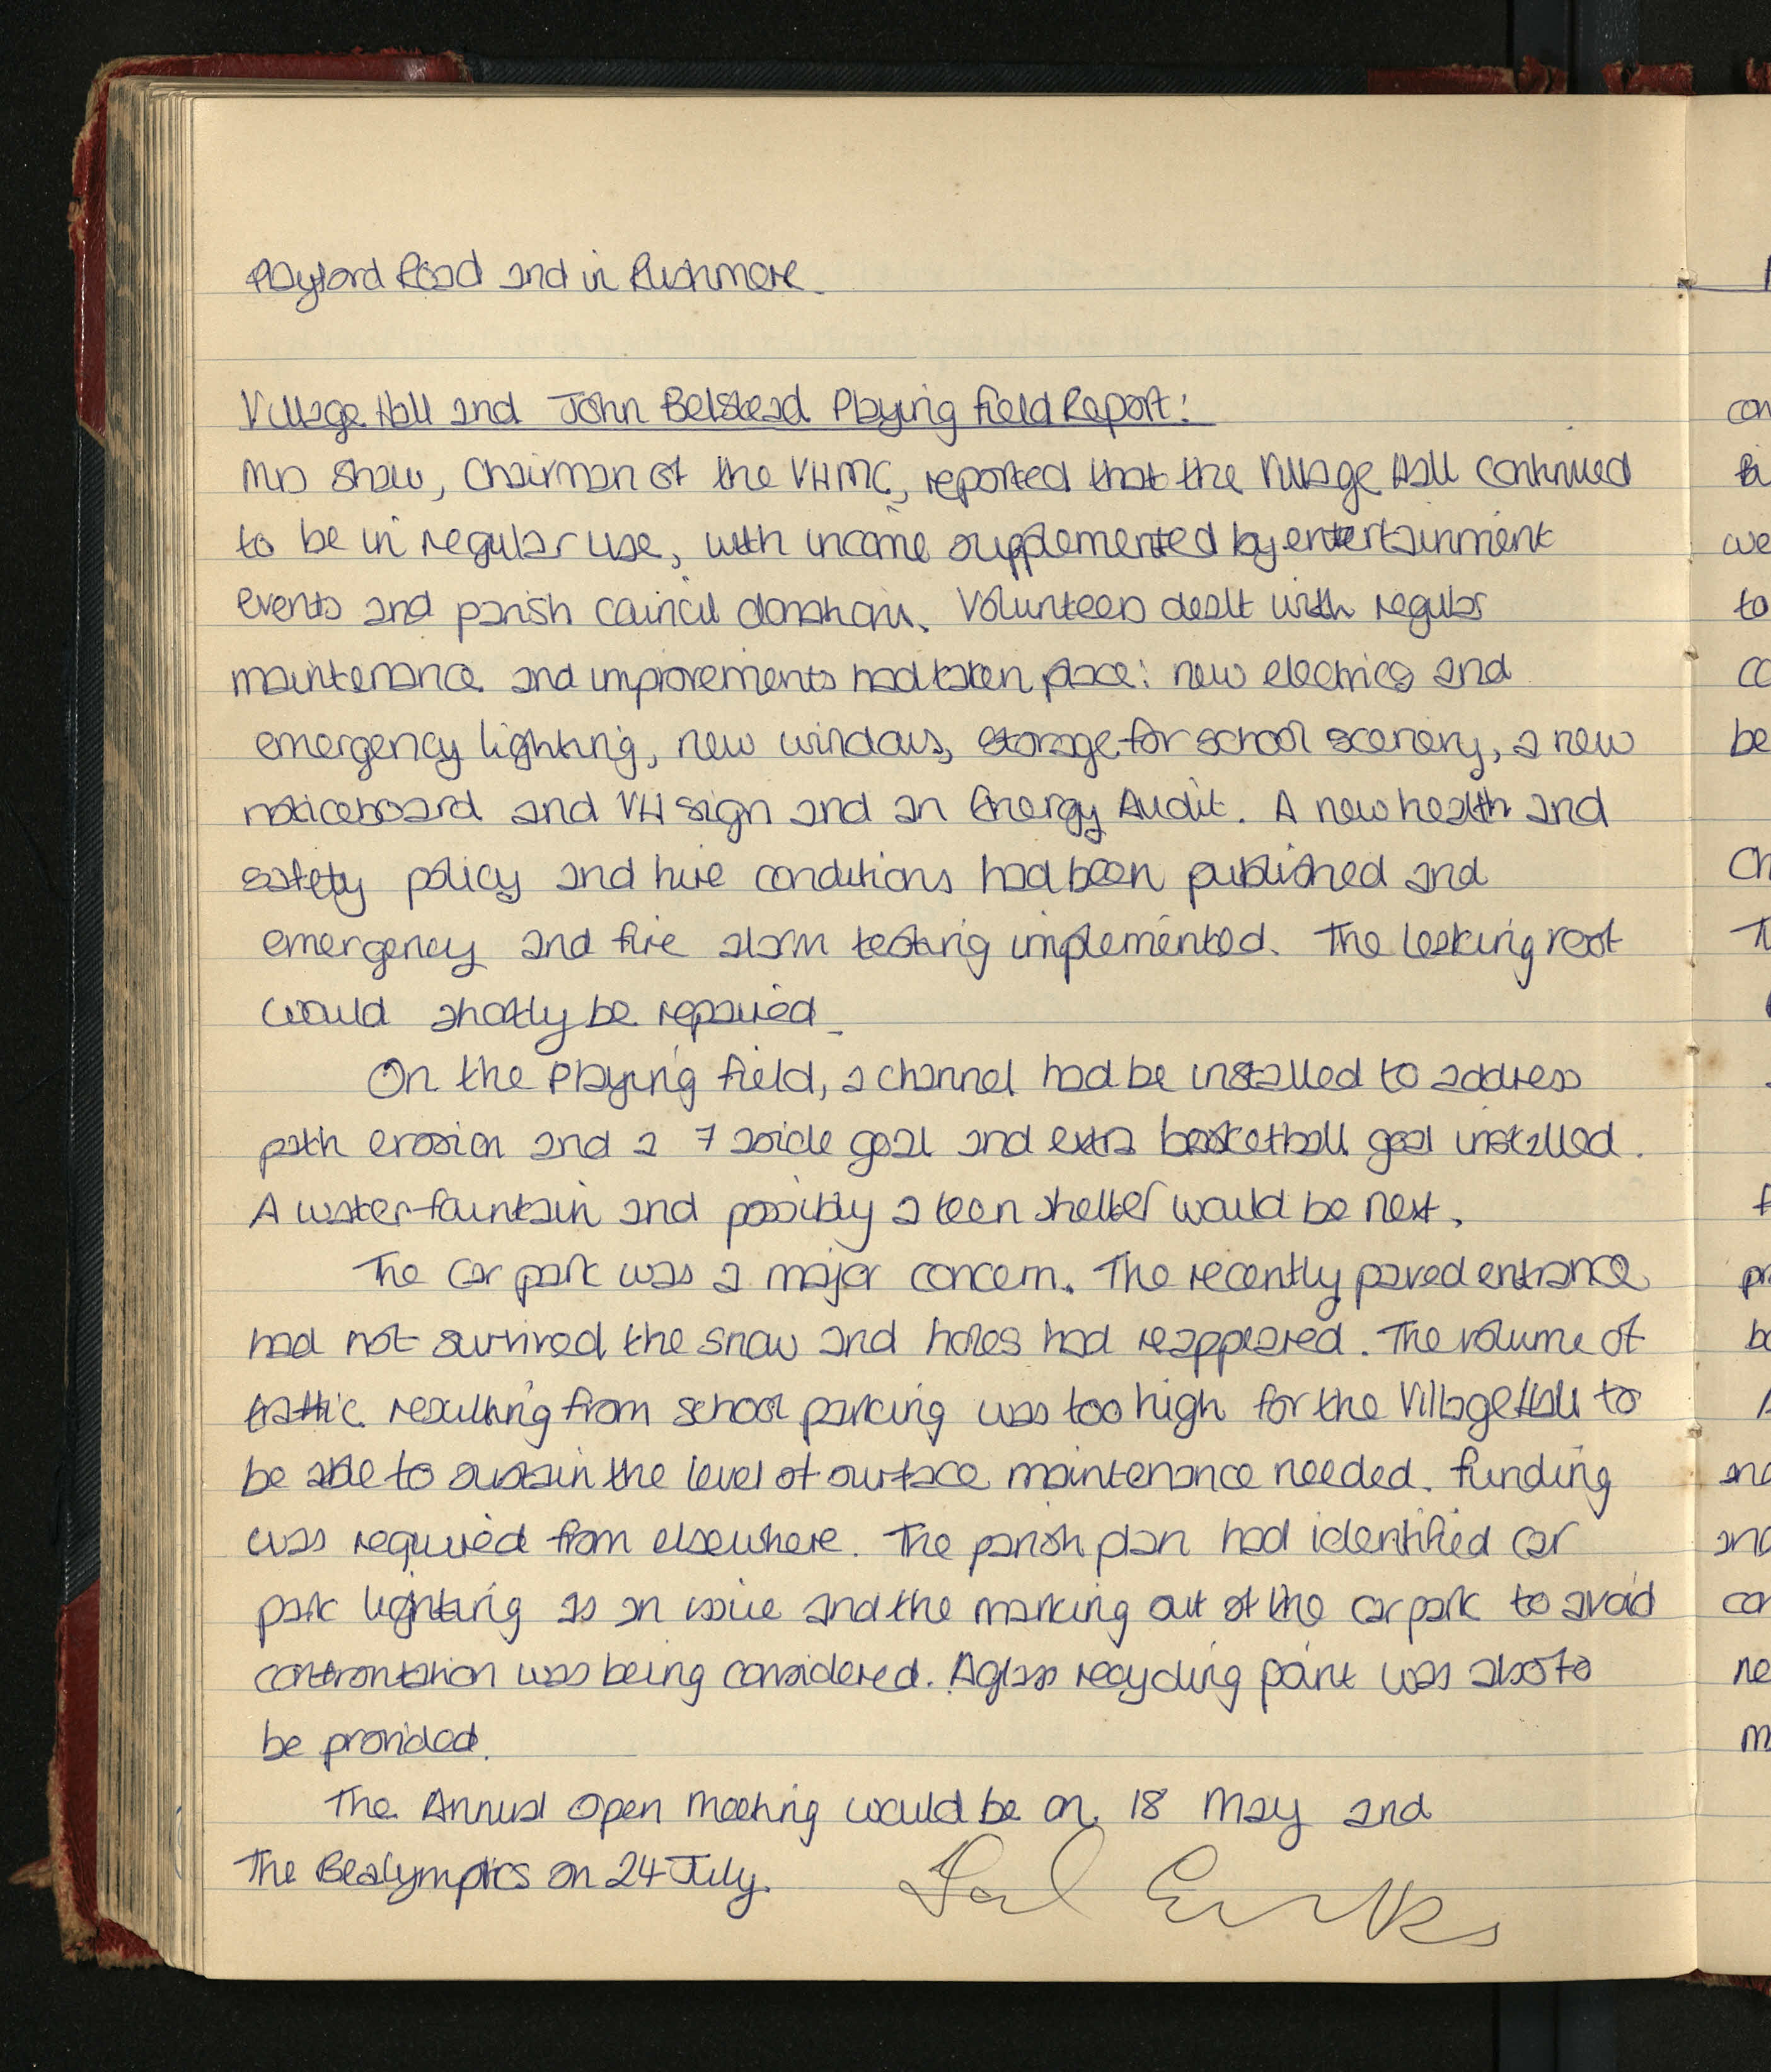 Playford Road and in Rushmere.
Village Hall and John Belstead Playing Field Report:
Mrs Shaw, Chairman of the VHMC, reported that the Village Hall continued
to be in regular use, with income supplemented by entertainment
events and parish council donations. Volunteers dealt with regular
maintenance and improvements had taken place: new electrics and
emergency lighting, new windows, storage for school scenery, a new
noticeboard and VH sign and an Energy Audit. A new health and
safety policy and hire conditions had been published and
emergency and fire alarm testing implemented. The leaking roof
would shortly be repaired.
On the Playing Field, a channel had be installed to address
path erosion and a 7 aside goal and extra basketball goal installed.
A water-fountain and possibly a teen shelter would be next.
The car park was a major concern. The recently paved entrance
had not survived the snow and holes had reappeared. The volume of
traffic resulting from school parking was too high for the Village Hall to
be able to sustain the level of surface maintenance needed. Funding
was required from elsewhere. The parish plan had identified car
park lighting as an issue and the marking out of the car park to avoid
confrontation was being considered. A glass recycling point was also to
be provided.
The Annual Open Meeting would be on 18 May and
The Bealympics on 24 July.